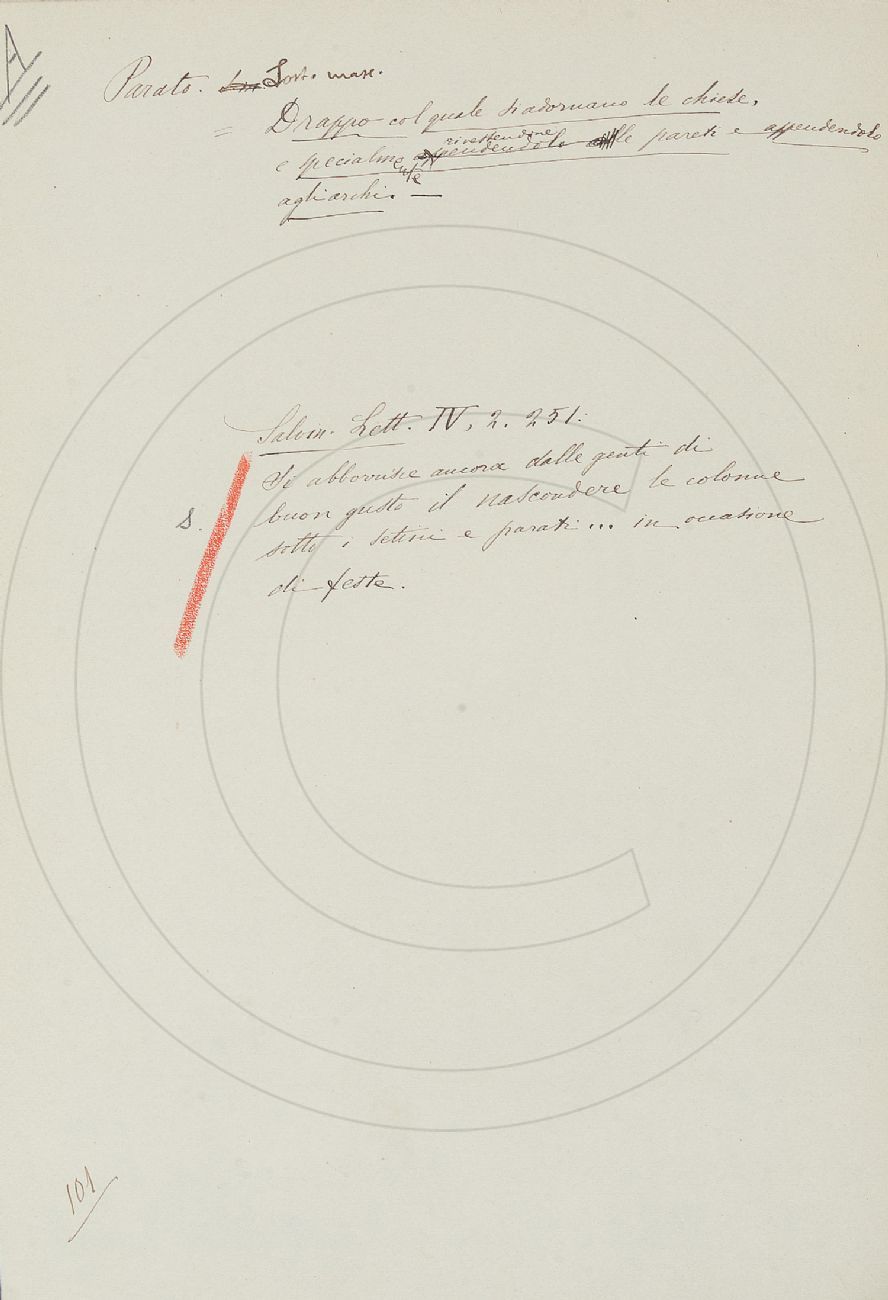 A
Parato. Sost. masc.
= Drappo col quale s'adornano le chiese,
e specialmente rivestendone le pareti e appendendolo
agli archi. —
Salvin. Lett. IV, 2. 251:
Si abborrisce ancora dalle genti di
buon gusto il nascondere le colonne
S. sotto i setini e parati... in occasione
di feste.
101